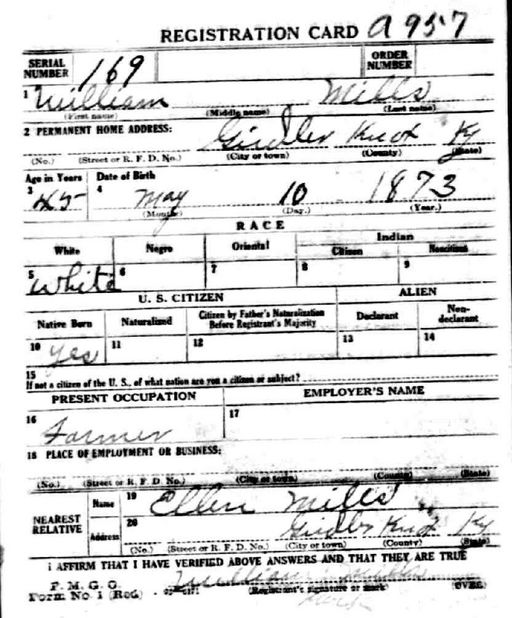 REGISTRATION CARD A957
SERIAL NUMBER 169 ORDER NUMBER
1 William Mills
(First name) (Middle name) (Last name)
2 PERMANENT HOME ADDRESS: Girdler Knox Ky
(No.) (Street or R. F. D. No.) (City or town) (County) (State)
Age in Years Date of Birth
3 45 4 May 10 1873
(Month.) (Day.) (Year.)
RACE
White Negro Oriental Indian
Citizen Noncitizen
5 White 6 7 8 9
U. S. CITIZEN ALIEN
Native Born Naturalized Citizen by Father's Naturalization Before Registrant's Majority Declarant Non-declarant
10 Yes 11 12 13 14
15
If not a citizen of the U. S., of what nation are you a citizen or subject?
PRESENT OCCUPATION EMPLOYER'S NAME
16 Farmer 17
18 PLACE OF EMPLOYMENT OR BUSINESS:
(No.) (Street or R. F. D. No.) (City or town) (County) (State)
NEAREST RELATIVE Name 19 Ellen Mills
Address 20 Girdler Knox Ky
(No.) (Street or R. F. D. No.) (City or town) (County) (State)
I AFFIRM THAT I HAVE VERIFIED ABOVE ANSWERS AND THAT THEY ARE TRUE
P. M. G. O.
Form No. 1 (Red) William Mills
(Registrant's signature or mark) OVER